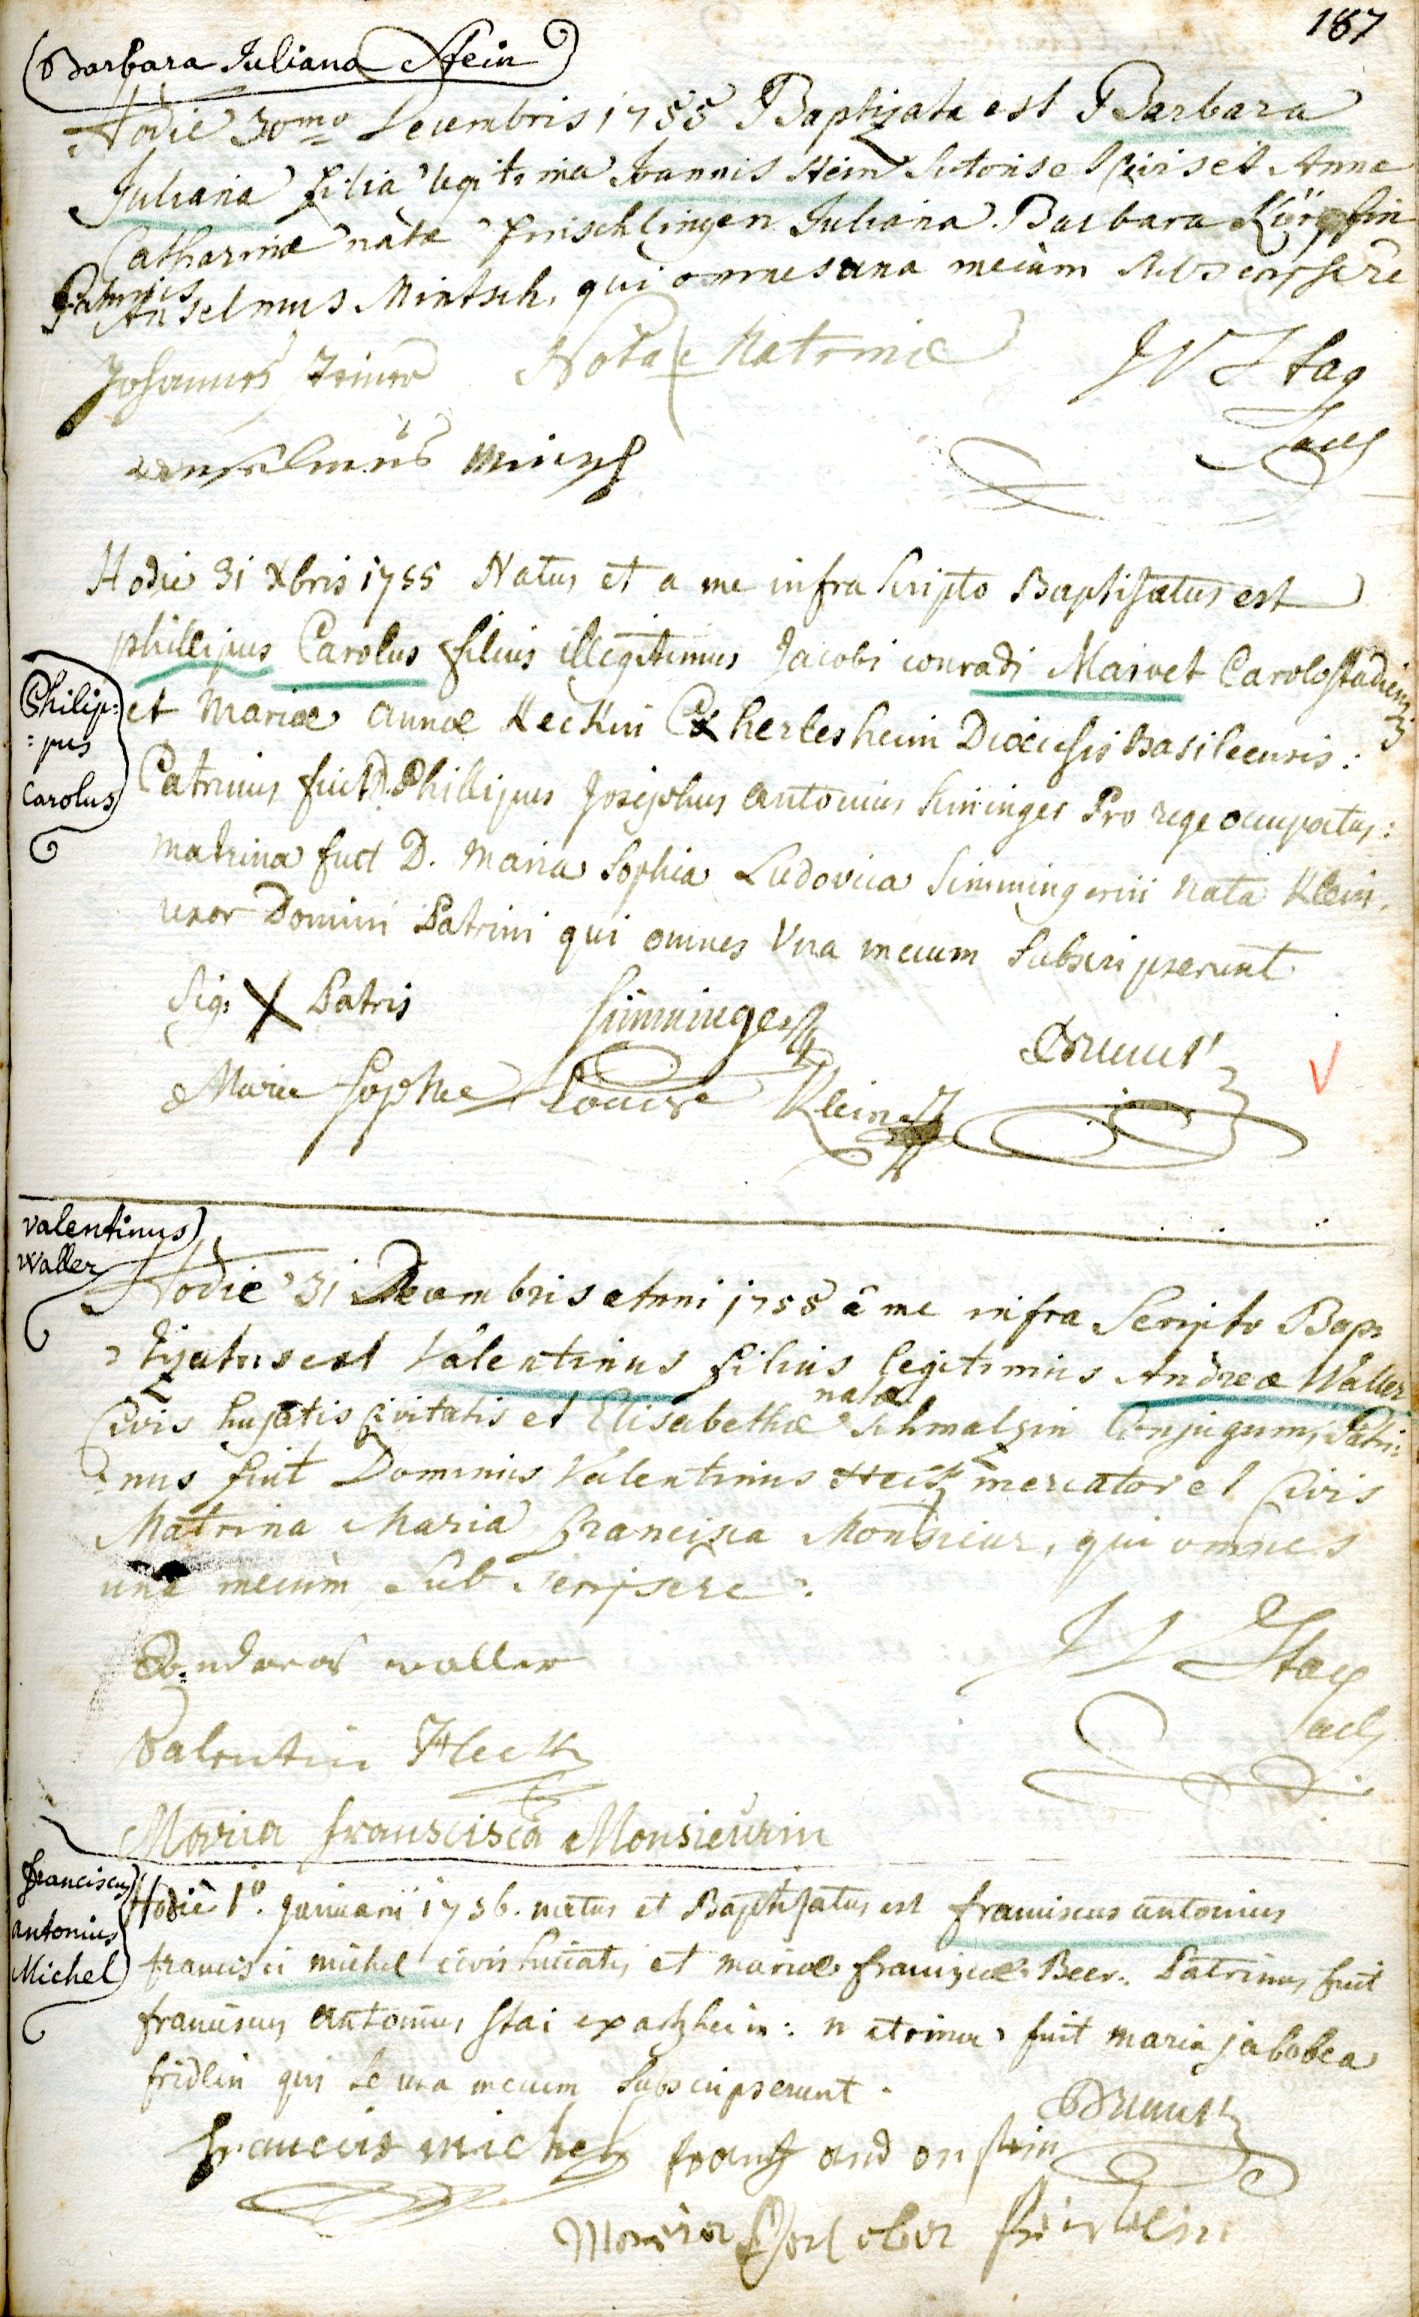 187
Barbara Juliana Stein
Hodie 30mo Decembris 1755 Baptizata est Barbara
Juliana filia legitima Joannis Stein Sutoris et Civis et Annæ
Catharinæ natæ Juliana Barbara
Patrinus Anselmus Mintsch, qui omnes una mecum subscripsere
Nota Matrinæ
W Stag
Hodie 31 Xbris 1755 Natus et a me infra Scripto Baptisatus est
phillipus Carolus filius illegitimus Jacobi conradi Maivet Carolostadiensis
Philip:
:pus
Carolus
et Mariæ annæ Keckin Ex herlesheim Dioicesis Basileensis:
Patrinus fuit D. Phillipus Josephus antonius Simminger Pro rege occupatus:
matrina fuit D. maria Sophia Ludovica Simmingerin nata Klein.
uxor Domini Patrini qui omnes Una mecum Subscripserunt
Sig: X Patris
Simminger
Marie Sophie Louise Klein
valentinus
Waller
Hodie 31 Decembris Anni 1755 â me infra Scripto Bap:
:tizatus est Valentinus filius legitimus Andreæ Waller
Civis hujatis Civitatis et Elisabethæ natæ Schmalzin Conjugum, Patri:
:nus fuit Dominus Valentinus Heck mercator et Civis
Matrina Maria Francisca Monsieur, qui omnes
una mecum Sub Scripsere.
Andereas waller
W Stag
Valentin Heck
Maria franscisca Monsieurin
franciscus
antonius
Michel
Hodie 1o. Januarii 1756. natus et Baptisatus est franciscus antonius
francisci michel civis huiatis et mariæ franciscæ Beer. Patrinus fuit
franciscus antonius Stai ex: matrina fuit maria jakobea
fridlin qui se una mecum Subscripserunt.
francis michel
frantz and on
Maria fridlin